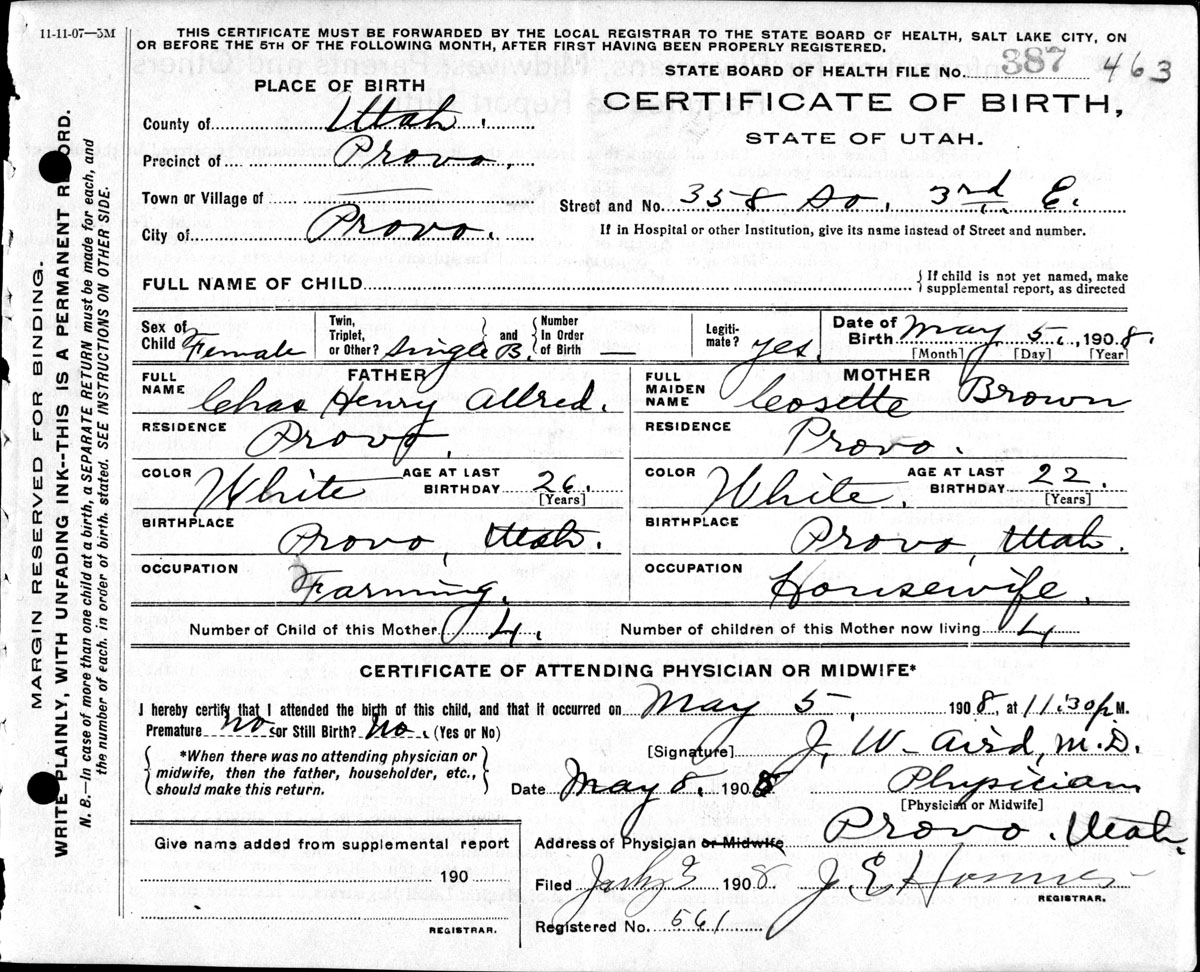 11-11-07—5M
THIS CERTIFICATE MUST BE FORWARDED BY THE LOCAL REGISTRAR TO THE STATE BOARD OF HEALTH, SALT LAKE CITY, ON
OR BEFORE THE 5TH OF THE FOLLOWING MONTH, AFTER FIRST HAVING BEEN PROPERLY REGISTERED.
STATE BOARD OF HEALTH FILE No. 387 463
PLACE OF BIRTH
CERTIFICATE OF BIRTH,
STATE OF UTAH.
County of Utah.
Precinct of Provo.
Town or Village of
Street and No. 358 So. 3rd E.
City of Provo.
If in Hospital or other Institution, give its name instead of Street and number.
FULL NAME OF CHILD
If child is not yet named, make
supplemental report, as directed
Sex of Child Female
Twin, Triplet, or Other? Single B. and Number In Order of Birth —
Legitimate? yes.
Date of Birth May 5, 1908.
[Month] [Day] [Year]
FATHER
FULL NAME Chas Henry Allred.
RESIDENCE Provo.
COLOR White AGE AT LAST BIRTHDAY 26. [Years]
BIRTHPLACE Provo, Utah.
OCCUPATION Farming.
MOTHER
FULL MAIDEN NAME Cosette Brown
RESIDENCE Provo.
COLOR White. AGE AT LAST BIRTHDAY 22. [Years]
BIRTHPLACE Provo, Utah.
OCCUPATION Housewife.
Number of Child of this Mother 4. Number of children of this Mother now living 4
CERTIFICATE OF ATTENDING PHYSICIAN OR MIDWIFE*
I hereby certify that I attended the birth of this child, and that it occurred on May 5, 1908, at 11:30 p M.
Premature no or Still Birth? No. (Yes or No)
*When there was no attending physician or
midwife, then the father, householder, etc.,
should make this return.
[Signature] J. W. Aird, M.D.
Date May 8, 1908 Physician
[Physician or Midwife]
Address of Physician or Midwife Provo. Utah.
Give name added from supplemental report
190
REGISTRAR.
Filed July 3 1908 J. E.
REGISTRAR.
Registered No. 561
MARGIN RESERVED FOR BINDING.
WRITE PLAINLY, WITH UNFADING INK--THIS IS A PERMANENT R ORD.
N. B.—In case of more than one child at a birth, a SEPARATE RETURN must be made for each, and
the number of each, in order of birth, stated. SEE INSTRUCTIONS ON OTHER SIDE.